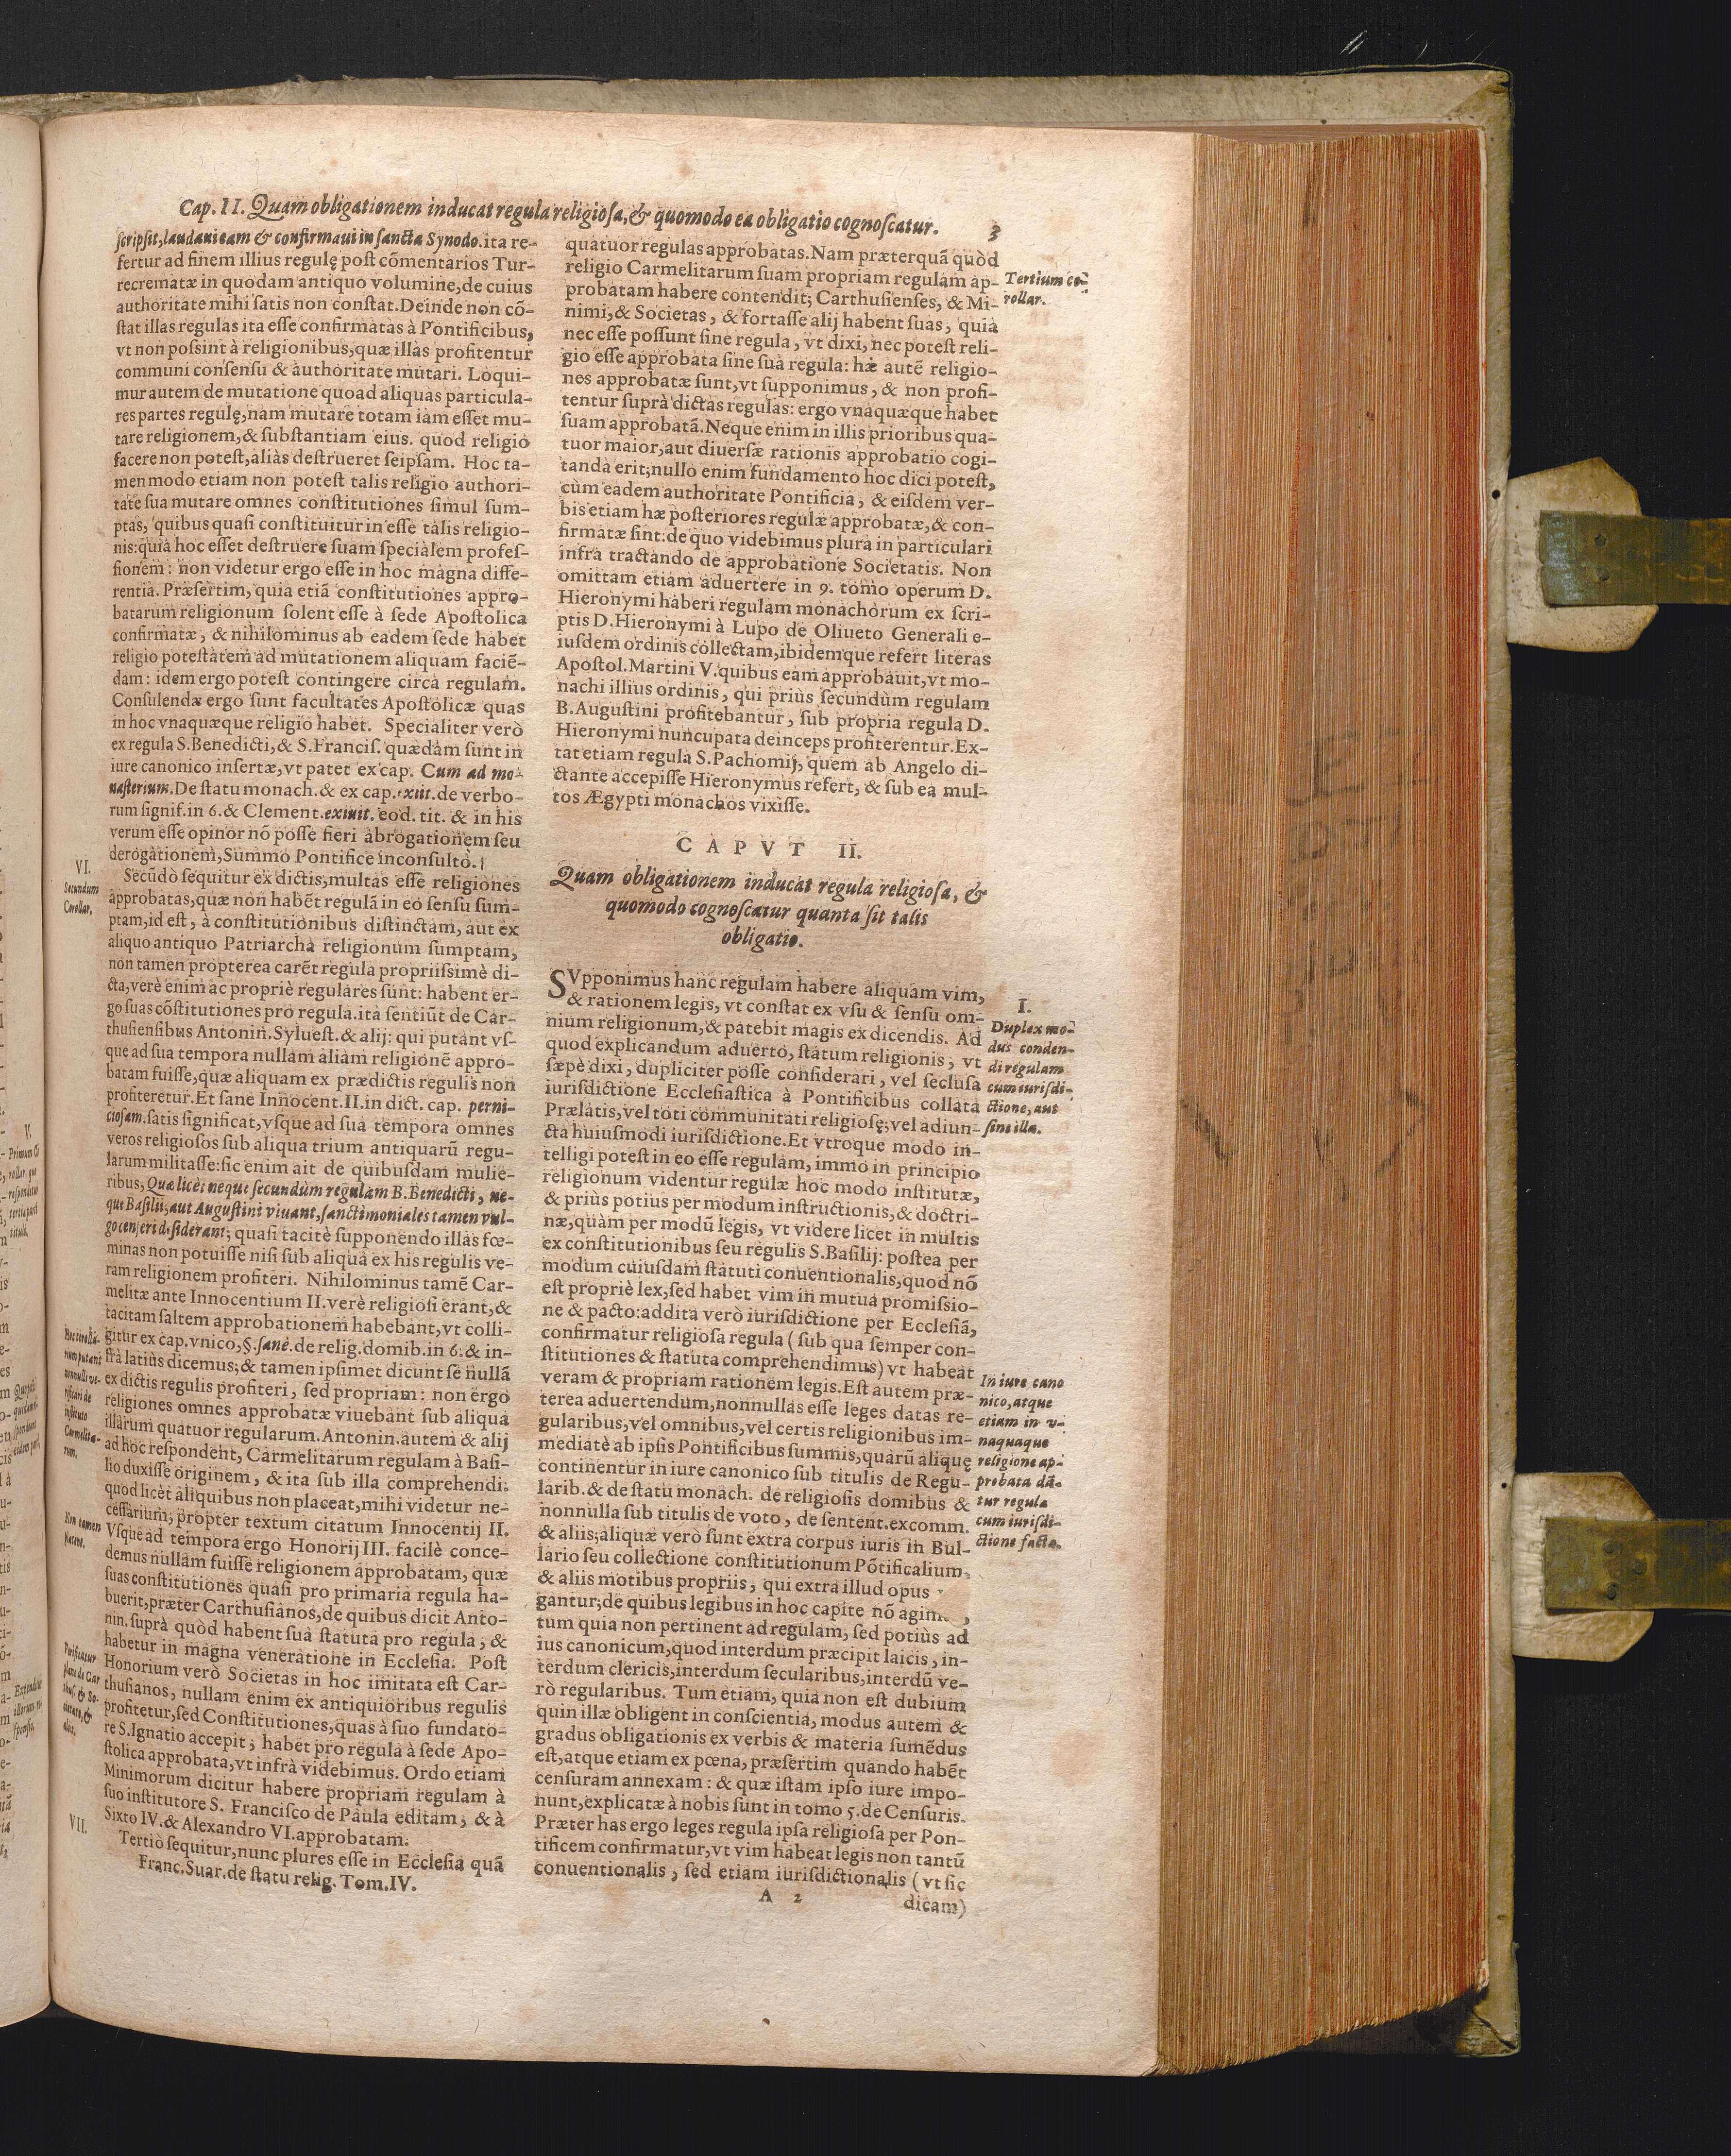 Cap. II. Quam obligationem inducat regula religiosa, & quomodo ea obligatio cognoscatur. 3
scripsit, laudaui eam & confirmaui in sancta Synodo. ita re-
fertur ad finem illius regulę post cōmentarios Tur-
recrematæ in quodam antiquo volumine, de cuius
authoritate mihi satis non constat. Deinde non cō-
stat illas regulas ita esse confirmatas à Pontificibus,
vt non possint à religionibus, quæ illas profitentur
communi consensu & authoritate mutari. Loqui-
mur autem de mutatione quoad aliquas particula-
res partes regulę, nam mutare totam iam esset mu-
tare religionem, & substantiam eius. quod religio
facere non potest, aliàs destrueret seipsam. Hoc ta-
men modo etiam non potest talis religio authori-
tate sua mutare omnes constitutiones simul sum-
ptas, quibus quasi constituitur in esse talis religio-
nis: quia hoc esset destruere suam specialem profes-
sionem: non videtur ergo esse in hoc magna diffe-
rentia. Præsertim, quia etiā constitutiones appro-
batarum religionum solent esse à sede Apostolica
confirmatæ, & nihilominus ab eadem sede habet
religio potestatem ad mutationem aliquam faciē-
dam: idem ergo potest contingere circa regulam.
Consulendæ ergo sunt facultates Apostolicæ quas
in hoc vnaquæque religio habet. Specialiter verò
ex regula S. Benedicti, & S. Francis. quædam sunt in
iure canonico insertæ, vt patet ex cap. Cum ad mo-
nasterium. De statu monach. & ex cap. exiit. de verbo-
rum signif. in 6. & Clement. exiuit. eod. tit. & in his
verum esse opinor nō posse fieri abrogationem seu
derogationem, Summo Pontifice inconsulto.
VI.
Secundum
Corollar.
Secūdò sequitur ex dictis, multas esse religiones
approbatas, quæ non habēt regulā in eo sensu sum-
ptam, id est, à constitutionibus distinctam, aut ex
aliquo antiquo Patriarcha religionum sumptam,
non tamen propterea carēt regula propriissimè di-
cta, verè enim ac propriè regulares sunt: habent er-
go suas cōstitutiones pro regula. ita sentiūt de Car-
thusiensibus Antonin. Syluest. & alij: qui putant vs-
que ad sua tempora nullam aliam religionē appro-
batam fuisse, quæ aliquam ex prædictis regulis non
profiteretur. Et sane Innocent. II. in dict. cap. perni-
ciosam. satis significat, vsque ad sua tempora omnes
veros religiosos sub aliqua trium antiquarū regu-
larum militasse: sic enim ait de quibusdam mulie-
ribus, Quæ licèt neque secundùm regulam B. Benedicti, ne-
que Basilii, aut Augustini viuant, sanctimoniales tamen vul-
go censeri desiderant; quasi tacitè supponendo illas fœ-
minas non potuisse nisi sub aliqua ex his regulis ve-
ram religionem profiteri. Nihilominus tamē Car-
melitæ ante Innocentium II. verè religiosi erant, &
tacitam saltem approbationem habebant, vt colli-
gitur ex cap. vnico, §. sanè. de relig. domib. in 6. & in-
frà latiùs dicemus; & tamen ipsimet dicunt se nullā
ex dictis regulis profiteri, sed propriam: non ergo
religiones omnes approbatæ viuebant sub aliqua
illarum quatuor regularum. Antonin. autem & alij
ad hoc respondent, Carmelitarum regulam à Basi-
lio duxisse originem, & ita sub illa comprehendi:
quod licèt aliquibus non placeat, mihi videtur ne-
cessarium, propter textum citatum Innocentij II.
Vsque ad tempora ergo Honorij III. facilè conce-
demus nullam fuisse religionem approbatam, quæ
suas constitutiones quasi pro primaria regula ha-
buerit, præter Carthusianos, de quibus dicit Anto-
nin. suprà quòd habent sua statuta pro regula, &
habetur in magna veneratione in Ecclesia. Post
Honorium verò Societas in hoc imitata est Car-
thusianos, nullam enim ex antiquioribus regulis
profitetur, sed Constitutiones, quas à suo fundato-
re S. Ignatio accepit; habet pro regula à sede Apo-
stolica approbata, vt infrà videbimus. Ordo etiam
Minimorum dicitur habere propriam regulam à
suo institutore S. Francisco de Paula editam, & à
Sixto IV. & Alexandro VI. approbatam.
VII.
Tertiò sequitur, nunc plures esse in Ecclesia quā
Franc. Suar. de statu relig. Tom. IV.
Hoc corolla-
rium putant
nonnulli ve-
rificari de
instituto
Carmelita-
rum.
Non tamen
placet.
quatuor regulas approbatas. Nam præterquā quòd
religio Carmelitarum suam propriam regulam ap-
probatam habere contendit; Carthusienses, & Mi-
nimi, & Societas, & fortasse alij habent suas, quia
nec esse possunt sine regula, vt dixi, nec potest reli-
gio esse approbata sine sua regula: hæ autē religio-
nes approbatæ sunt, vt supponimus, & non profi-
tentur suprà dictas regulas: ergo vnaquæque habet
suam approbatā. Neque enim in illis prioribus qua-
tuor maior, aut diuersæ rationis approbatio cogi-
tanda erit; nullo enim fundamento hoc dici potest,
cùm eadem authoritate Pontificia, & eisdem ver-
bis etiam hæ posteriores regulæ approbatæ, & con-
firmatæ sint: de quo videbimus plura in particulari
infrà tractando de approbatione Societatis. Non
omittam etiam aduertere in 9. tomo operum D.
Hieronymi haberi regulam monachorum ex scri-
ptis D. Hieronymi à Lupo de Oliueto Generali e-
iusdem ordinis collectam, ibidemque refert literas
Apostol. Martini V. quibus eam approbauit, vt mo-
nachi illius ordinis, qui priùs secundùm regulam
B. Augustini profitebantur, sub propria regula D.
Hieronymi nuncupata deinceps profiterentur. Ex-
tat etiam regula S. Pachomij, quem ab Angelo di-
ctante accepisse Hieronymus refert, & sub ea mul-
tos Ægypti monachos vixisse.
Tertium co-
rollar.
CAPVT II.
Quam obligationem inducat regula religiosa, &
quomodo cognoscatur quanta sit talis
obligatio.
SVpponimus hanc regulam habere aliquam vim,
& rationem legis, vt constat ex vsu & sensu om-
nium religionum, & patebit magis ex dicendis. Ad
quod explicandum aduerto, statum religionis, vt
sæpè dixi, dupliciter posse considerari, vel seclusa
iurisdictione Ecclesiastica à Pontificibus collata
Prælatis, vel toti communitati religiosę; vel adiun-
cta huiusmodi iurisdictione. Et vtroque modo in-
telligi potest in eo esse regulam, immo in principio
religionum videntur regulæ hoc modo institutæ,
& priùs potius per modum instructionis, & doctri-
næ, quàm per modū legis, vt videre licet in multis
ex constitutionibus seu regulis S. Basilij: postea per
modum cuiusdam statuti conuentionalis, quod nō
est propriè lex, sed habet vim in mutua promissio-
ne & pacto: addita verò iurisdictione per Ecclesiā,
confirmatur religiosa regula (sub qua semper con-
stitutiones & statuta comprehendimus) vt habeat
veram & propriam rationem legis. Est autem præ-
terea aduertendum, nonnullas esse leges datas re-
gularibus, vel omnibus, vel certis religionibus im-
mediatè ab ipsis Pontificibus summis, quarū aliquę
continentur in iure canonico sub titulis de Regu-
larib. & de statu monach. de religiosis domibus &
nonnulla sub titulis de voto, de sentent. excomm.
& aliis; aliquæ verò sunt extra corpus iuris in Bul-
lario seu collectione constitutionum Pōtificalium,
& aliis motibus propriis, qui extra illud opus
gantur; de quibus legibus in hoc capite nō agim
tum quia non pertinent ad regulam, sed potiùs ad
ius canonicum, quod interdum præcipit laicis, in-
terdum clericis, interdum secularibus, interdū ve-
rò regularibus. Tum etiam, quia non est dubium
quin illæ obligent in conscientia, modus autem &
gradus obligationis ex verbis & materia sumēdus
est, atque etiam ex pœna, præsertim quando habēt
censuram annexam: & quæ istam ipso iure impo-
nunt, explicatæ à nobis sunt in tomo 5. de Censuris.
Præter has ergo leges regula ipsa religiosa per Pon-
tificem confirmatur, vt vim habeat legis non tantū
conuentionalis, sed etiam iurisdictionalis (vt sic
A 2 dicam)
I.
Duplex mo-
dus conden-
di regulam
cum iurisdi-
ctione, aut
sine illa.
In iure cano
nico, atque
etiam in v-
naquaque
religione ap-
probata dā-
tur regula
cum iurisdi-
ctione facta.